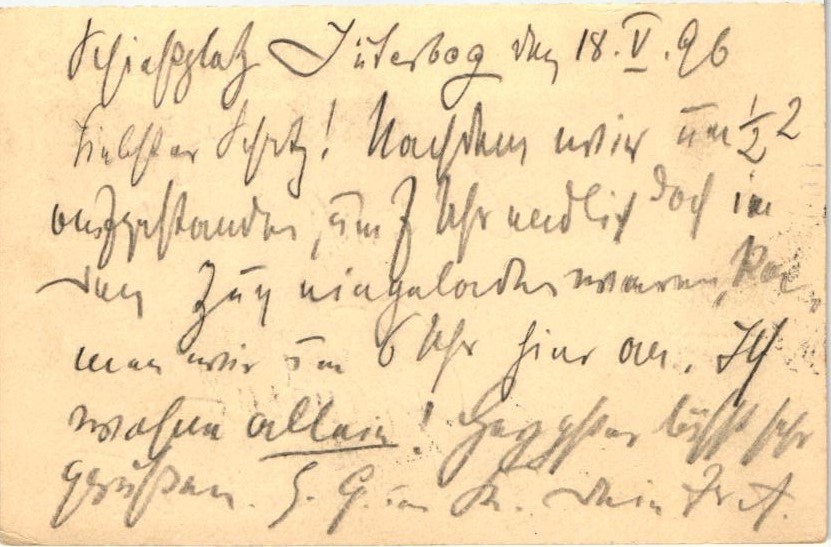 Schießplatz Jüterbog den 18. V. 96
Liebster Schatz! Nachdem wir um ½ 2
aufgestanden, um 7 Uhr endlich doch in
den Zug eingeladen waren, ka-
men wir um 6 Uhr hier an. Ich
wohne allein! läßt sehr
grüßen. H. G. u. K. Dein